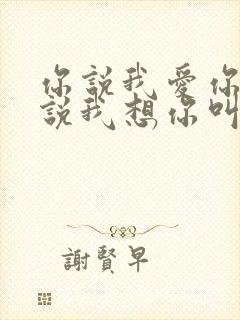 你說我愛你
說我想你叫
謝賢早